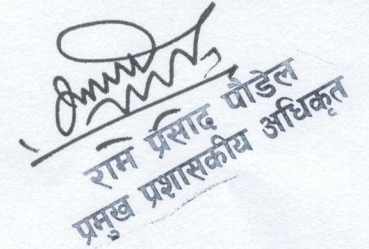 राम प्रसाद पौडेल
प्रमुख प्रशासकीय अधिकृत